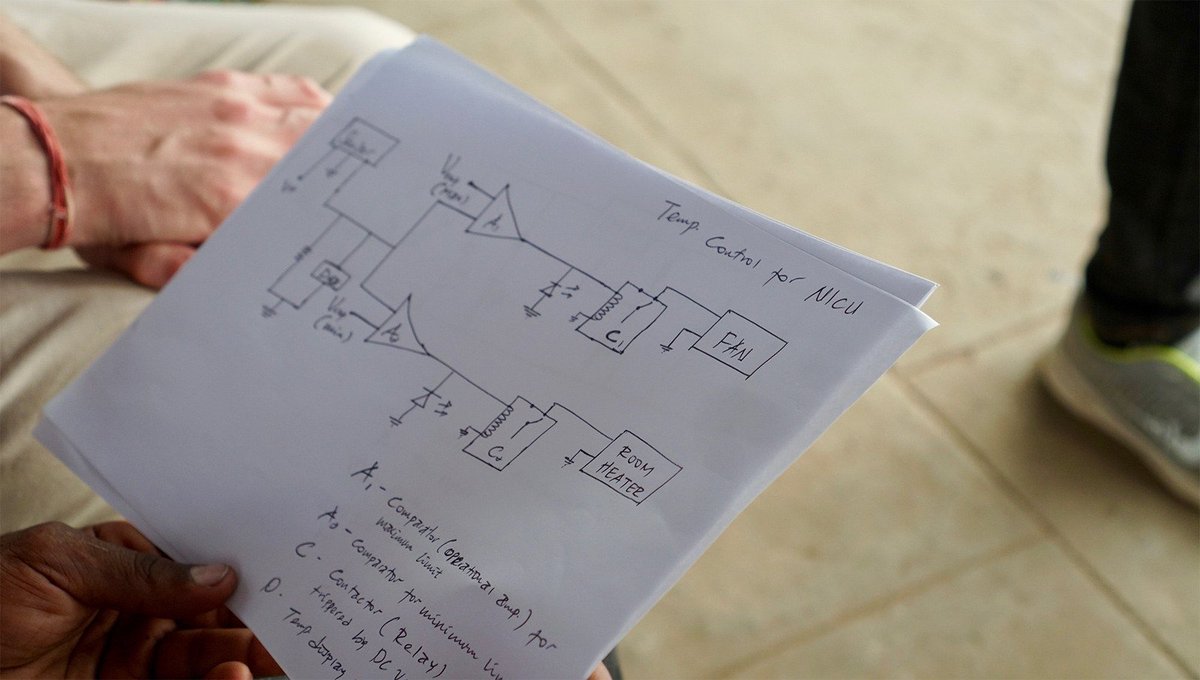 Temp. Control for NICU
(max)
A₁
C₁
FAN
(min)
A₂
C₂
ROOM
HEATER
A₁ - Comparator (operational amp.) for
maximum limit
A₂ - Comparator for minimum
C - Contactor (Relay)
triggered by DC
D. Temp display